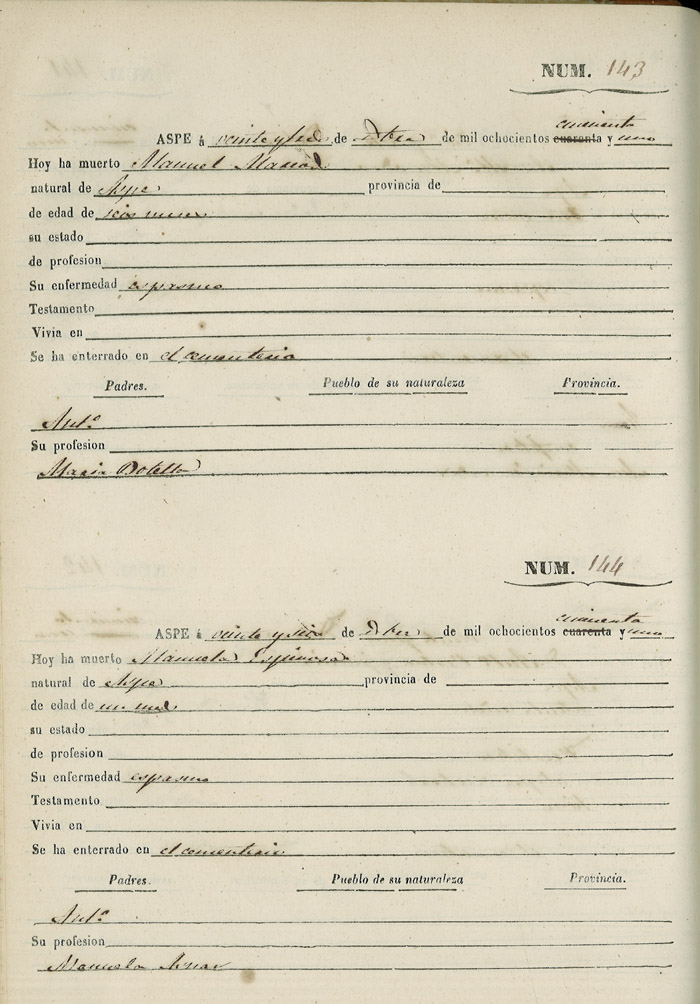 NUM. 143
cincuenta
ASPE á veinte y tres de Dbre de mil ochocientos cuarenta y uno
Hoy ha muerto Manuel
natural de Aspe provincia de
de edad de seis meses
su estado
de profesion
Su enfermedad espasmo
Testamento
Vivia en
Se ha enterrado en el cementerio
Padres. Pueblo de su naturaleza Provincia.
Antº
Su profesion
Maria Botella
NUM. 144
cincuenta
ASPE á veinte y seis de Dbre de mil ochocientos cuarenta y uno
Hoy ha muerto Manuela Espinosa
natural de Aspe provincia de
de edad de un mes
su estado
de profesion
Su enfermedad espasmo
Testamento
Vivia en
Se ha enterrado en el cementerio
Padres. Pueblo de su naturaleza Provincia.
Antº
Su profesion
Manuela Aznar